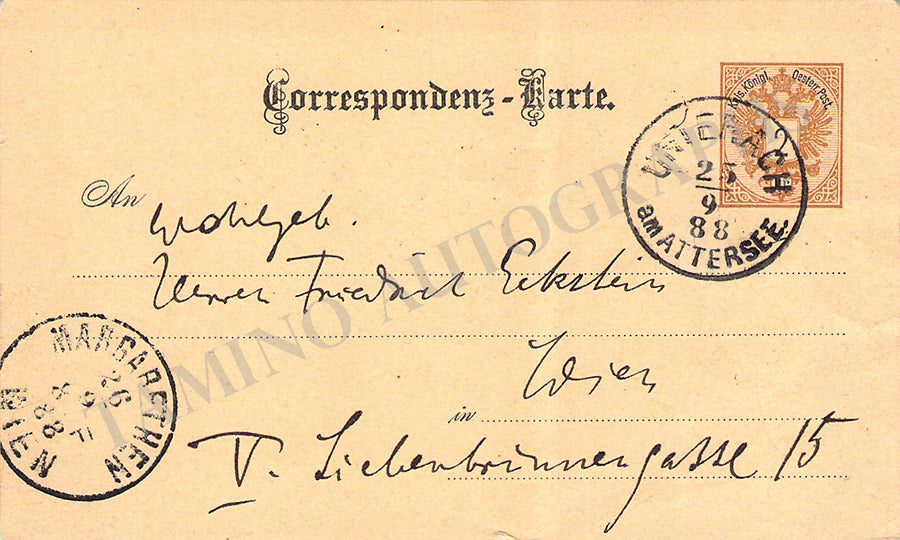 Correspondenz-Karte.
Kais. Königl. Oesterr. Post.
2
UNTERACH
25
9
88
am ATTERSEE.
An
Wohlgeb.
Herrn Friedrich Eckstein
in Wien
V. Siebenbrunnengasse 15
MARGARETHEN
WIEN
26
9
88
8 F
TAMINO AUTOGRAPHS